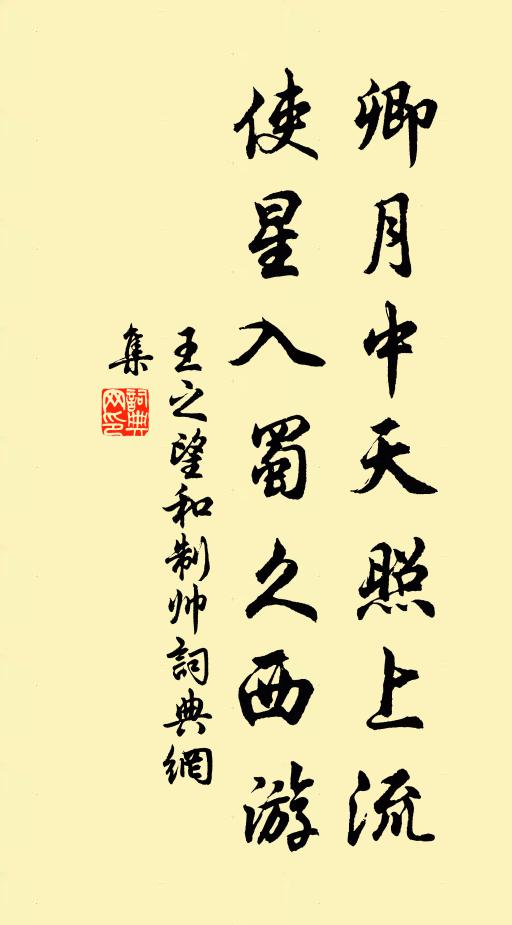 卿月中天照上流
使星入蜀久西游
王之望和制帅詞典網
集
詞典网印